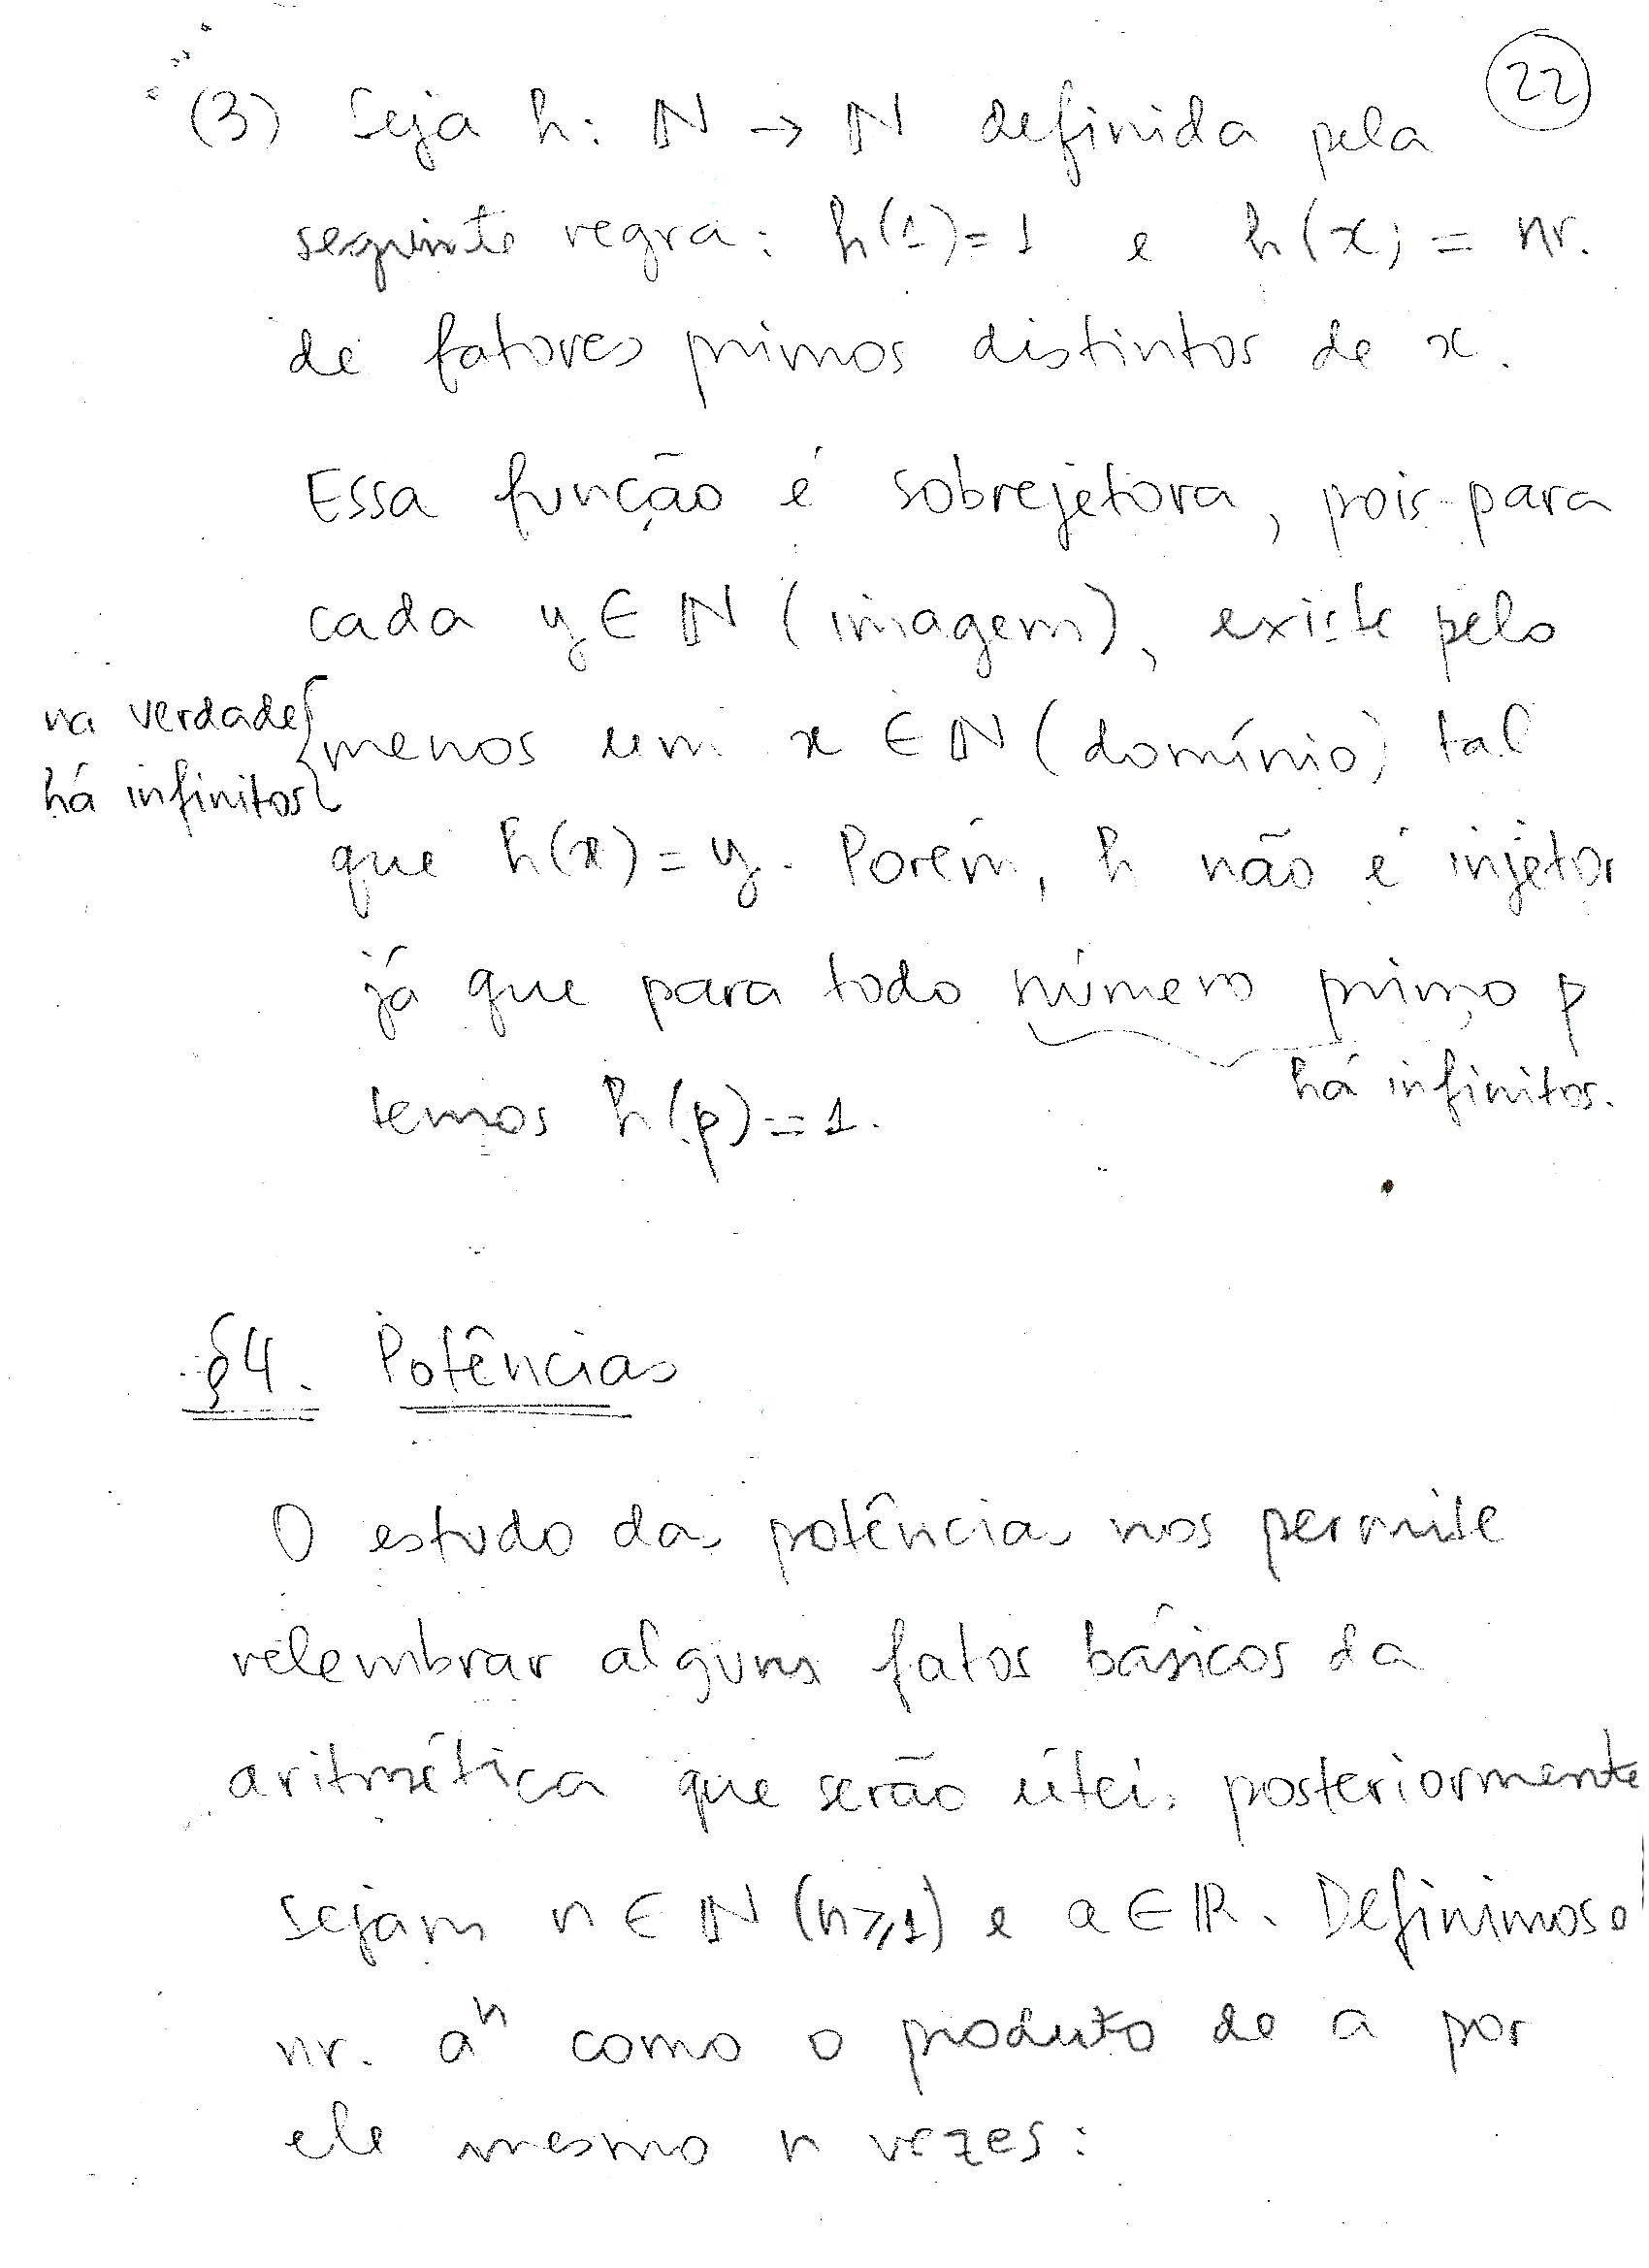 22
(3) Seja h: ℕ → ℕ definida pela
seguinte regra: h(1)=1 e h(x) = nr.
de fatores primos distintos de x.
Essa função é sobrejetora, pois para
cada y ∈ ℕ (imagem), existe pelo
na verdade
há infinitos
menos um x ∈ ℕ (domínio) tal
que h(x) = y. Porém, h não é injetor
já que para todo número primo p
há infinitos.
temos h(p)=1.
§4. Potências
O estudo das potências nos permite
relembrar alguns fatos básicos da
aritmética que serão úteis posteriormente
sejam n ∈ ℕ (n⩾1) e a ∈ ℝ. Definimos o
nr. aⁿ como o produto de a por
ele mesmo n vezes: